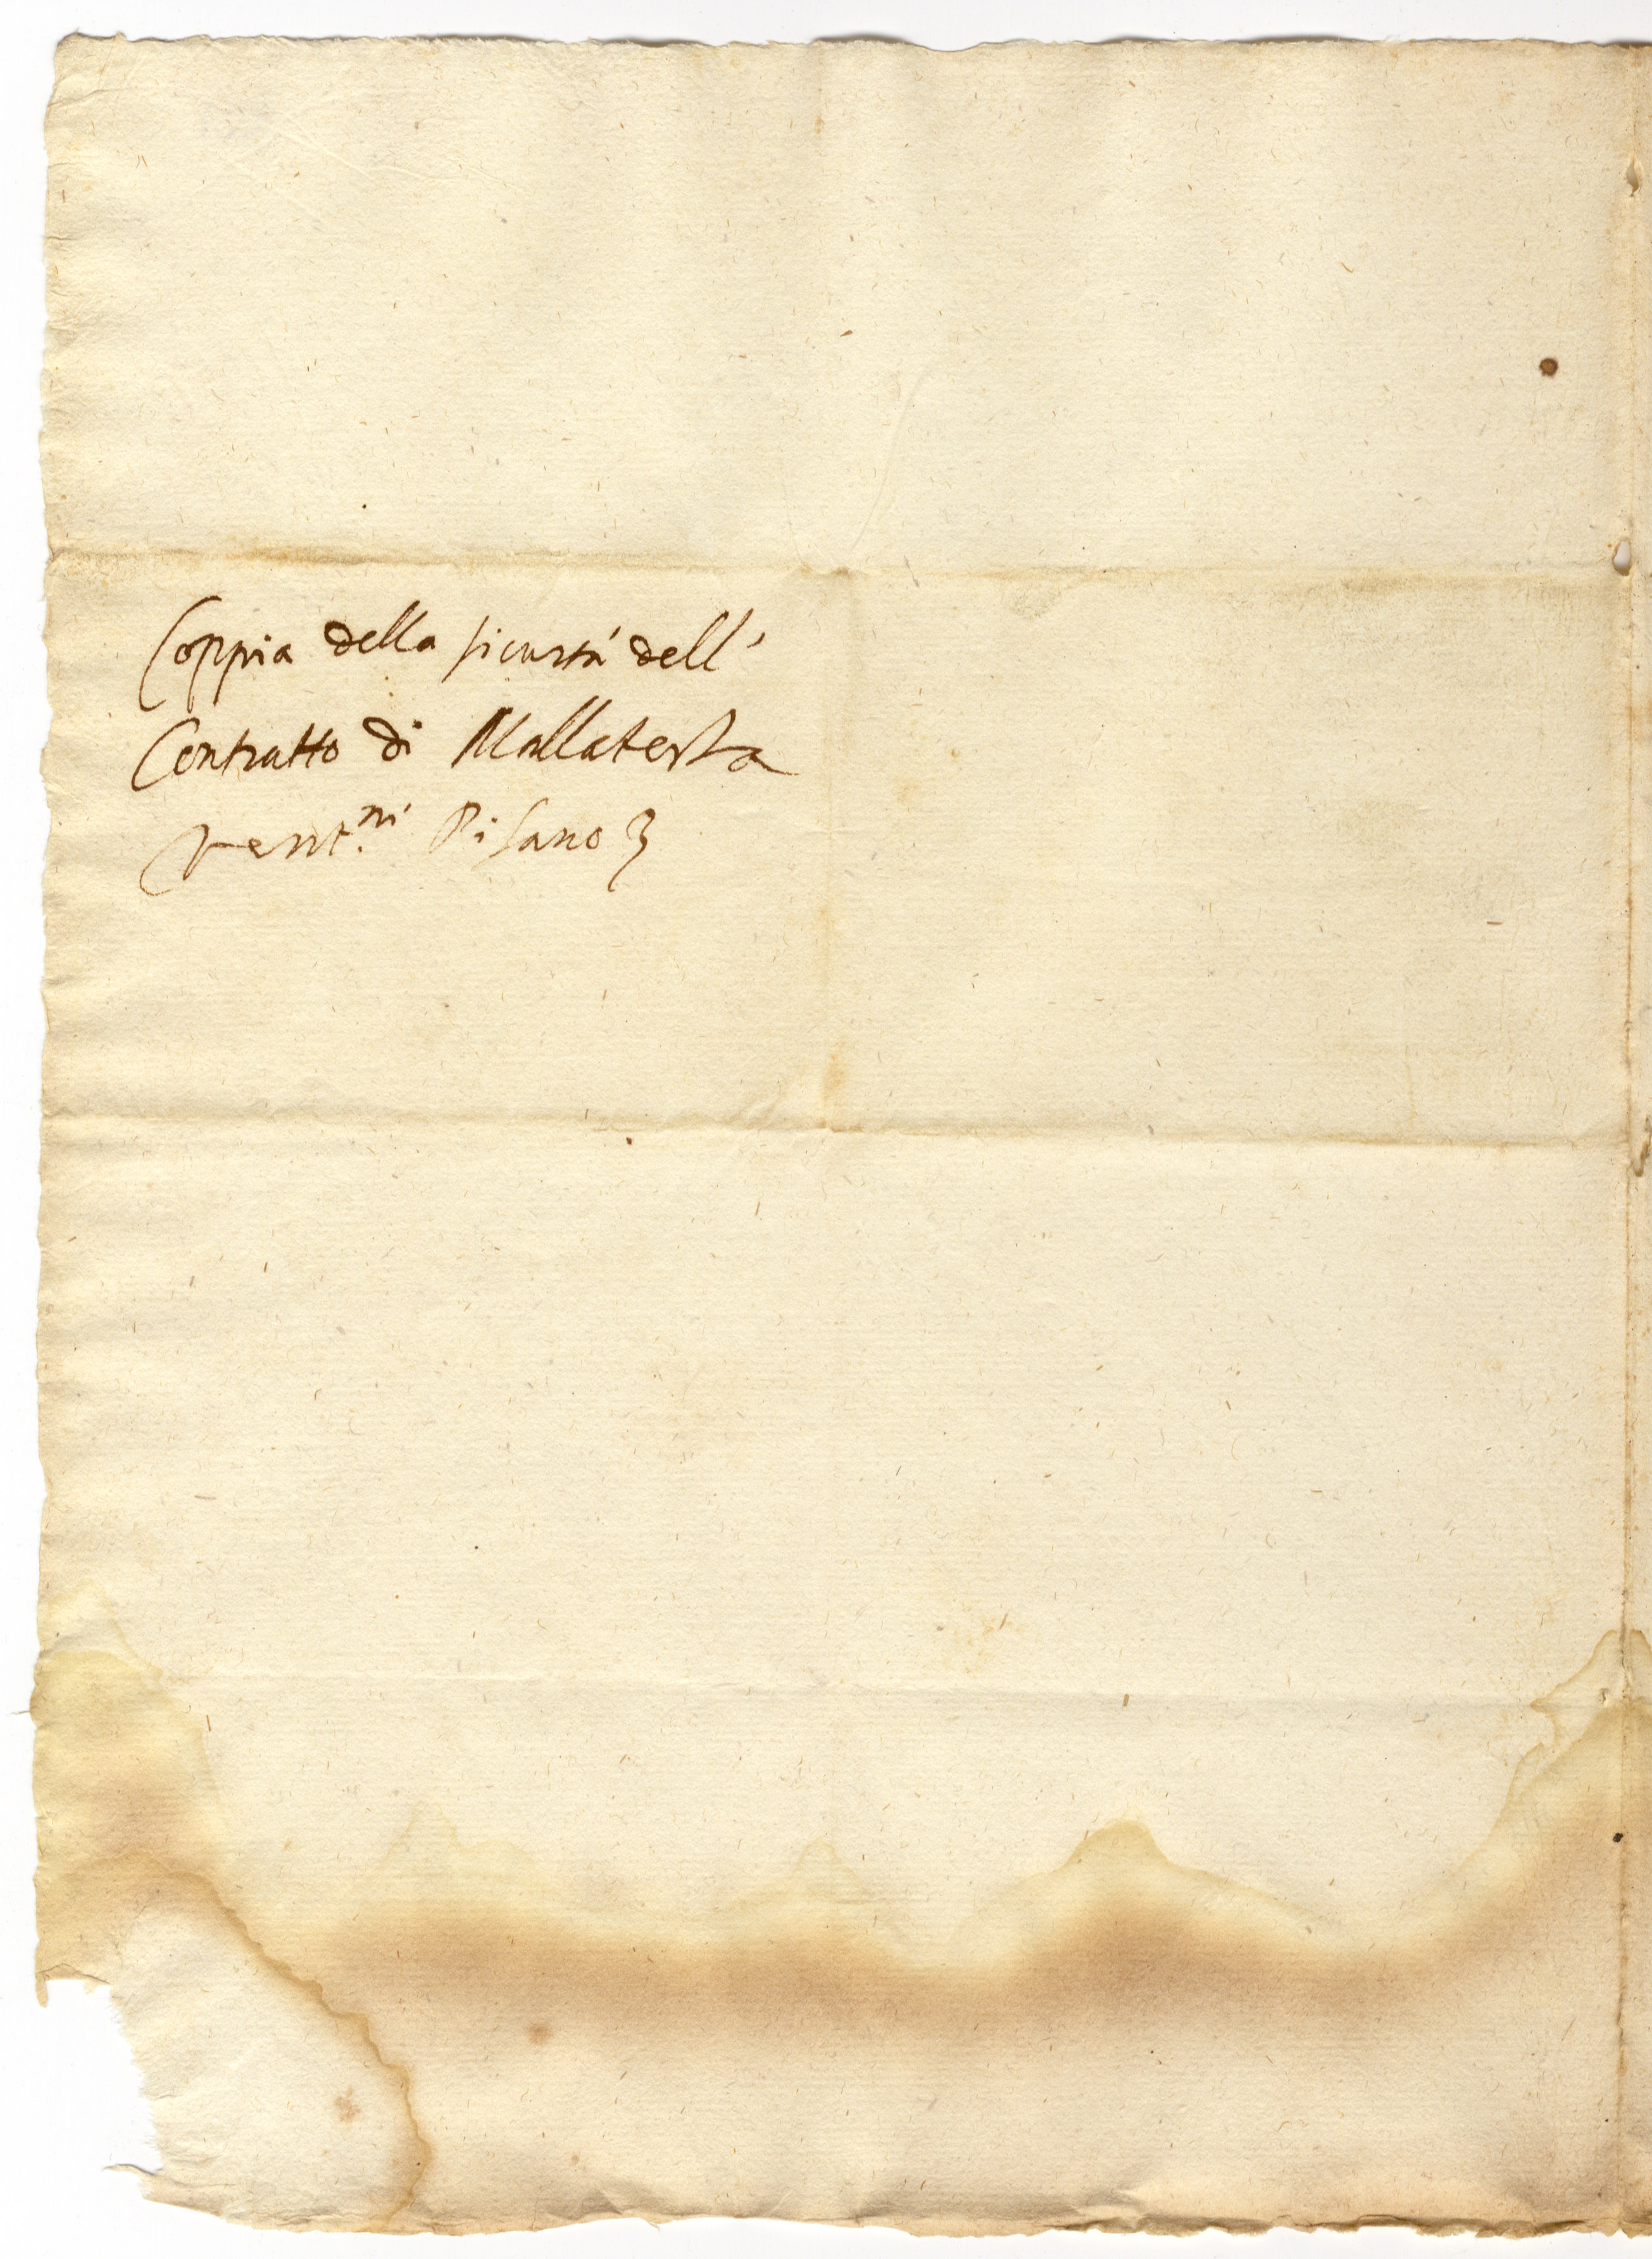 Coppia della sicurtà dell'
Contratto di Mallatesta
Vent.ni Pisano